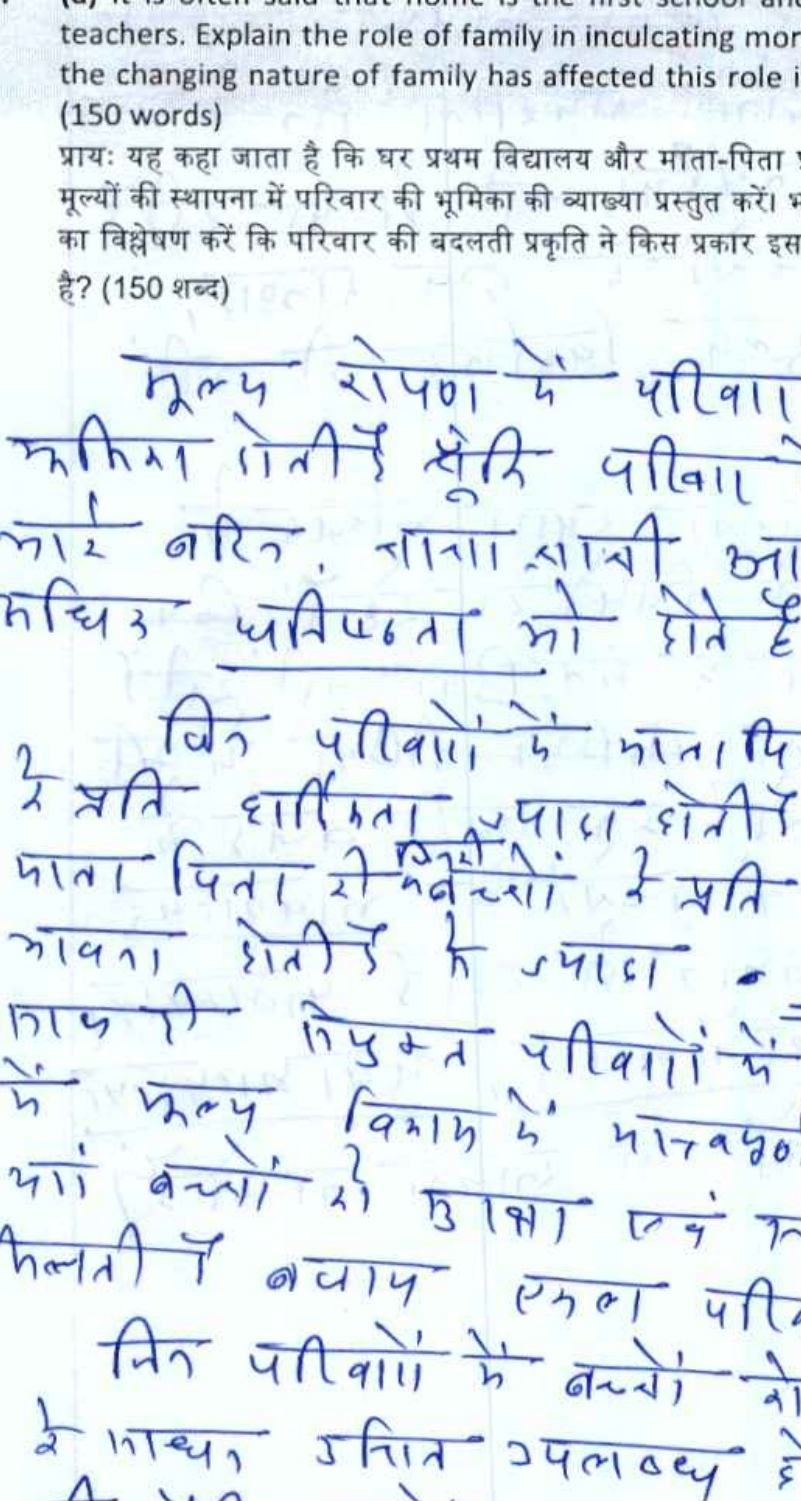 (a) It is often said that home is the first school and
teachers. Explain the role of family in inculcating mor
the changing nature of family has affected this role i
(150 words)
प्रायः यह कहा जाता है कि घर प्रथम विद्यालय और माता-पिता प्
मूल्यों की स्थापना में परिवार की भूमिका की व्याख्या प्रस्तुत करें। भ
का विश्लेषण करें कि परिवार की बदलती प्रकृति ने किस प्रकार इस
है? (150 शब्द)
मूल्य रोपण में परिवा
होती है चूंकि परिवार
भाई बहिन, चाचा चाची आ
अधिक घनिष्ठता को होते है
जिन परिवारों में माता पि
के प्रति धार्मिकता ज्यादा होती है
माता पिता की बच्चों के प्रति
भावना होती है ज्यादा
साथ ही संयुक्त परिवारों में
में मूल्य विकास में महत्वपूर्ण
बच्चों को सुरक्षा एवं
मिलती है बजाय एकल परि
जिन परिवारों में बच्चों को
के साधन उचित उपलब्ध हो